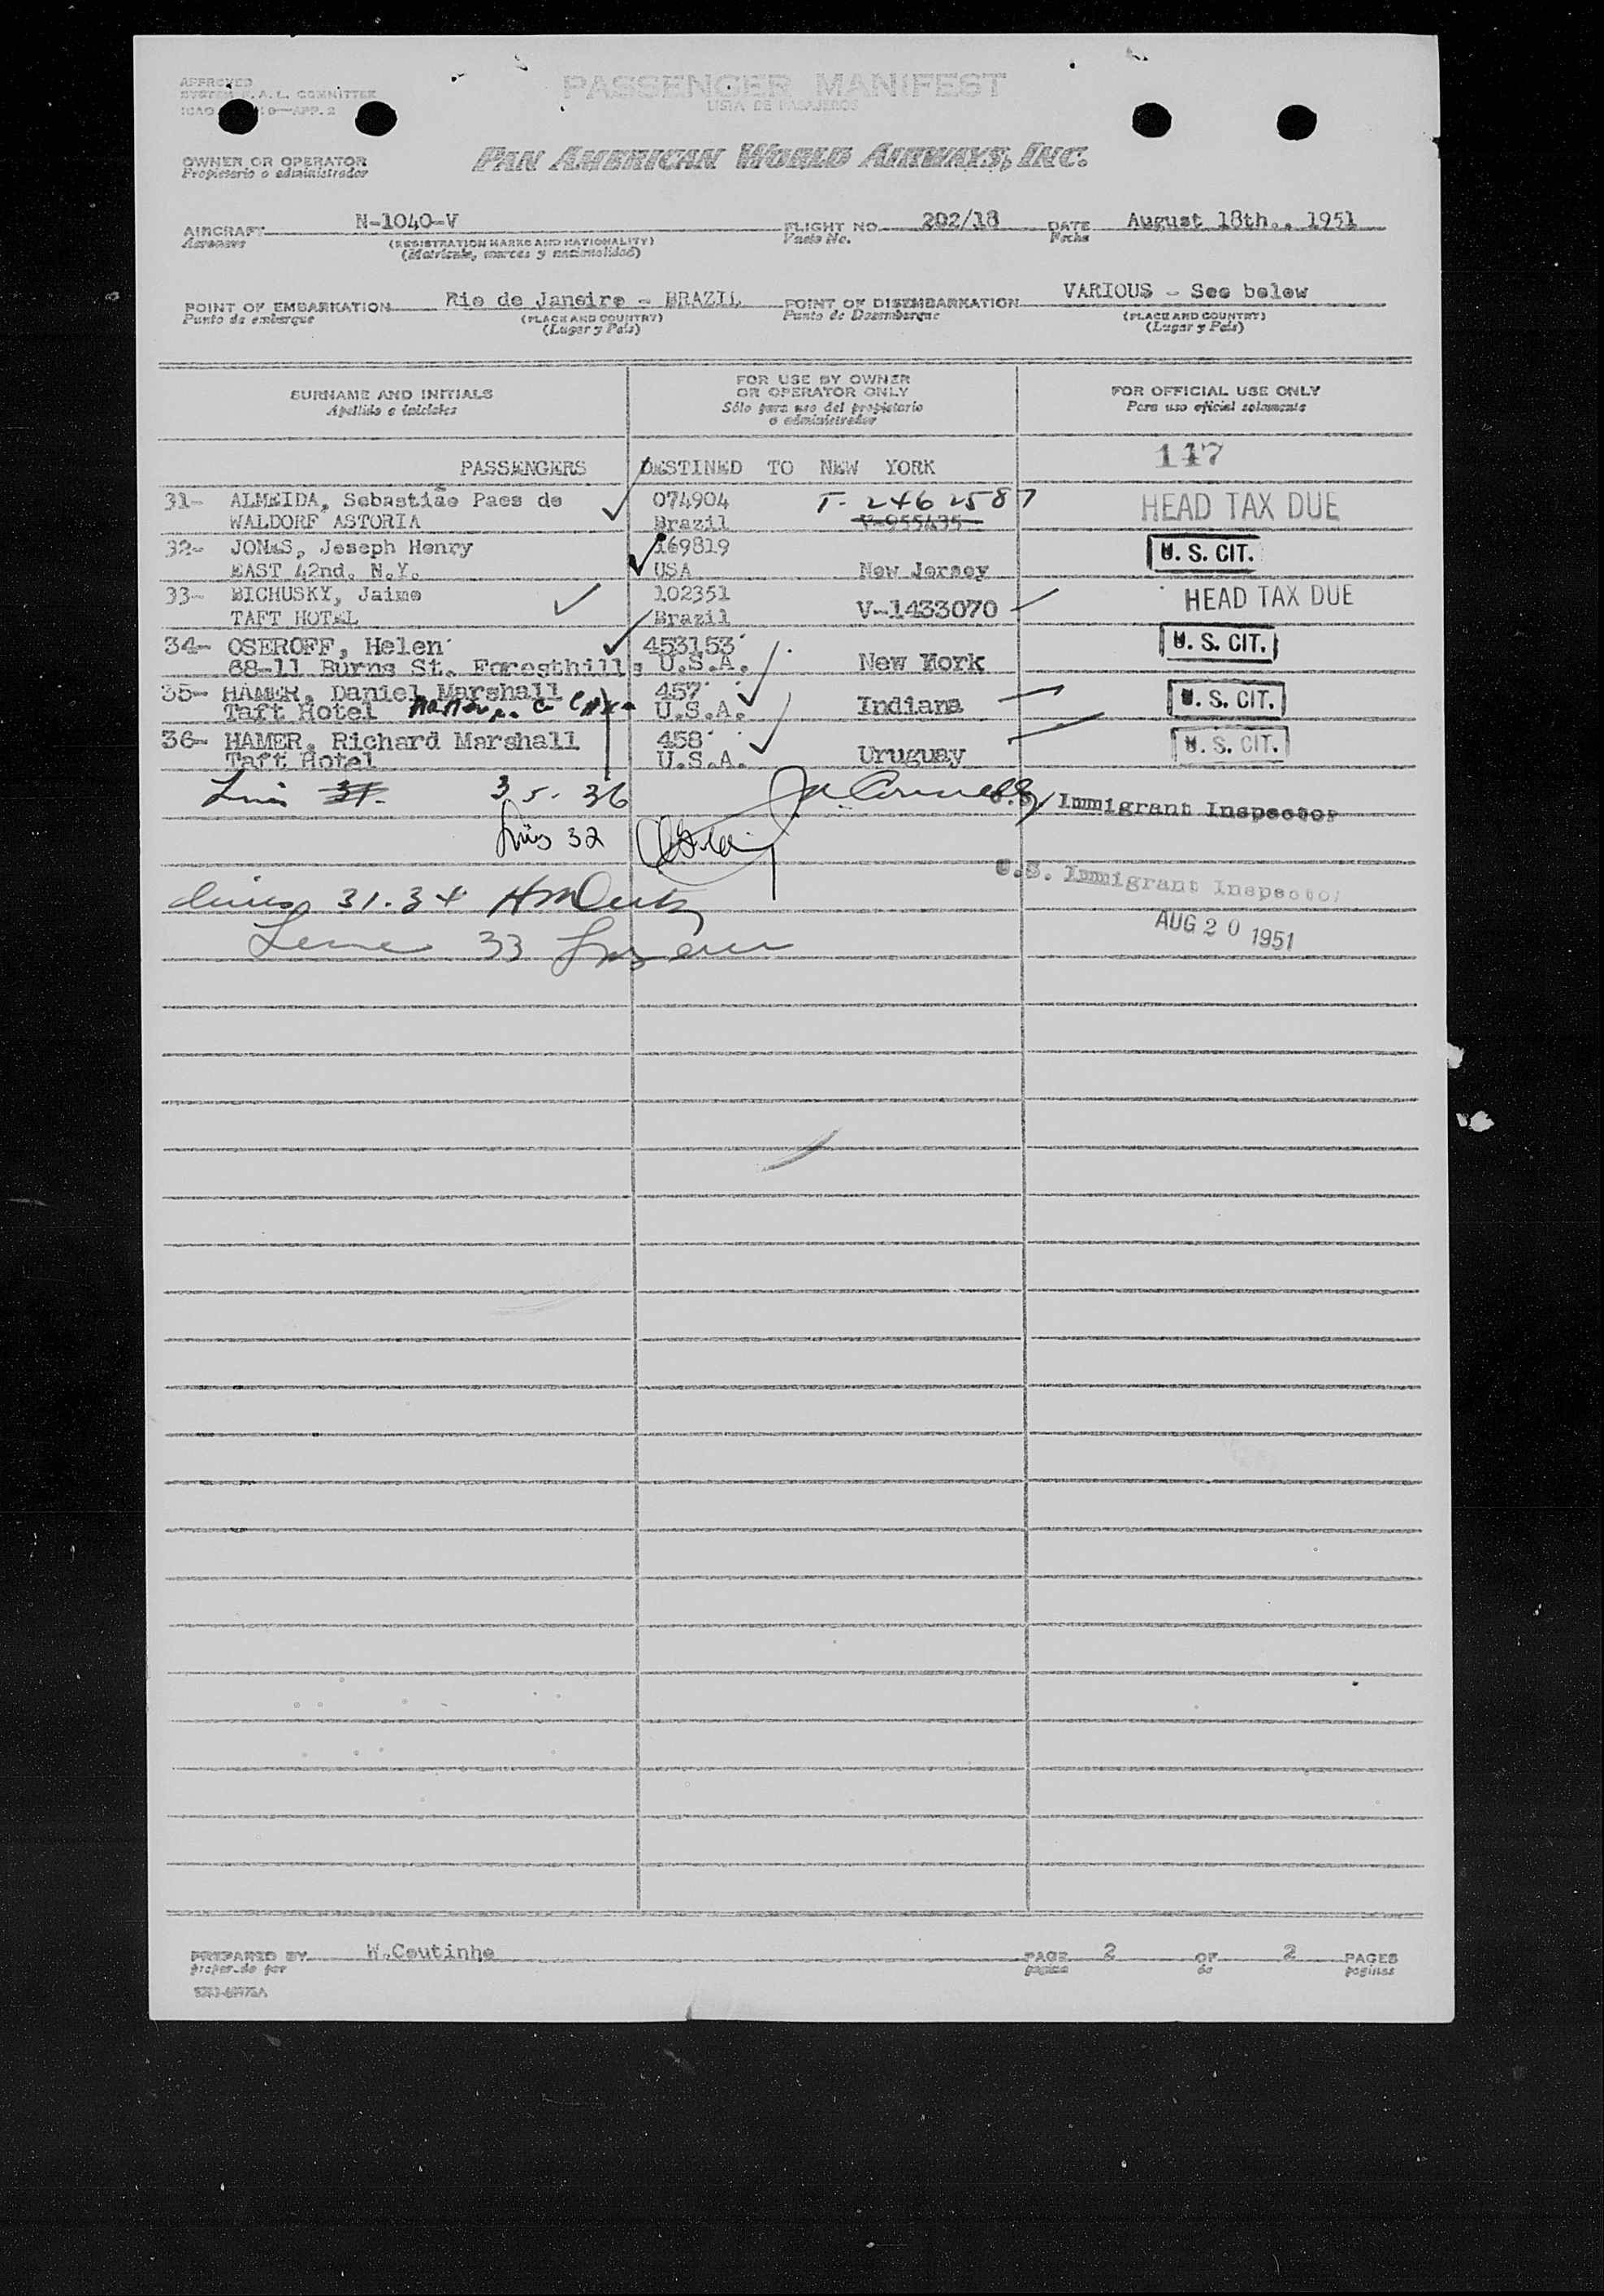 APPROVED
PASSENGER MANIFEST
SYSTEM F.A.L. COMMITTEE
LISTA DE PASAJEROS
ICAO APP. 2
OWNER OR OPERATOR
Propietario o administrador
PAN AMERICAN WORLD AIRWAYS, INC.
AIRCRAFT N-1040-V FLIGHT NO. 202/18 DATE August 18th., 1951
Aeronave (REGISTRATION MARKS AND NATIONALITY) Vuelo No. Fecha
(Matricula, marcas y nacionalidad)
POINT OF EMBARKATION Rio de Janeiro - BRAZIL POINT OF DISEMBARKATION VARIOUS - See below
Punto de embarque (PLACE AND COUNTRY) Punto de Desembarque (PLACE AND COUNTRY)
(Lugar y Pais) (Lugar y Pais)
SURNAME AND INITIALS
Apellido e iniciales
FOR USE BY OWNER
OR OPERATOR ONLY
Sólo para uso del propietario
o administrador
FOR OFFICIAL USE ONLY
Para uso oficial solamente
117
PASSENGERS DESTINED TO NEW YORK
31- ALMEIDA, Sebastião Paes de 074904 T- 2462587 HEAD TAX DUE
WALDORF ASTORIA Brazil V-955435
32- JONES, Joseph Henry 169819 U. S. CIT.
EAST 42nd. N.Y. USA New Jersey
33- BICHUSKY, Jaime 102351 HEAD TAX DUE
TAFT HOTEL Brazil V-1433070
34- OSEROFF, Helen 453153 U. S. CIT.
68-11 Burns St. Foresthills U.S.A. New York
35- HAMER, Daniel Marshall 457 U. S. CIT.
Taft Hotel U.S.A. Indiana
36- HAMER, Richard Marshall 458 U. S. CIT.
Taft Hotel U.S.A. Uruguay
35-36
U.S. Immigrant Inspector
32
U.S. Immigrant Inspector
31-34
AUG 20 1951
Line 33
PREPARED BY W.Coutinho PAGE 2 OF 2 PAGES
prepar-do por pagina de paginas